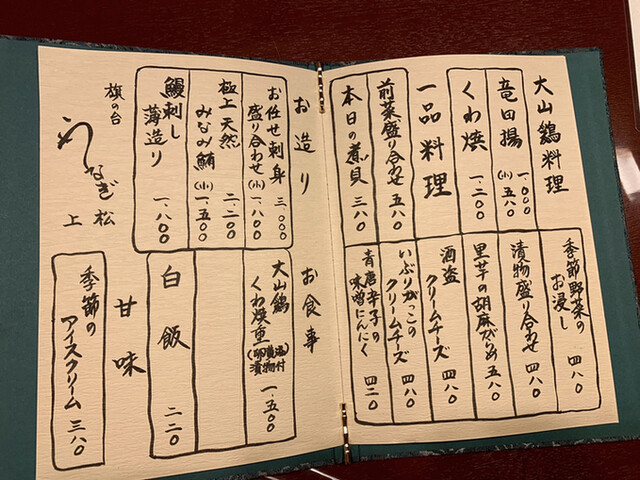 大山鶏料理
竜田揚 一、〇〇〇
(小)五八〇
くわ焼 一、二〇〇
一品料理
前菜盛り合わせ 五八〇
本日の煮貝 三八〇
季節野菜の
お浸し 四八〇
漬物盛り合わせ 四八〇
里芋の胡麻がらめ 五八〇
酒盗
クリームチーズ 四八〇
いぶりがっこの
クリームチーズ 四八〇
青唐辛子の
味噌にんにく 四二〇
お造り
お任せ刺身
盛り合わせ 三、〇〇〇
(小)一、八〇〇
極上天然
みなみ鮪 二、二〇〇
(小)一、五〇〇
鰻刺し
薄造り 一、八〇〇
お食事
大山鶏
くわ焼重 一、五〇〇
白飯 二二〇
甘味
季節の
アイスクリーム 三八〇
旗の台
うなぎ
松
上